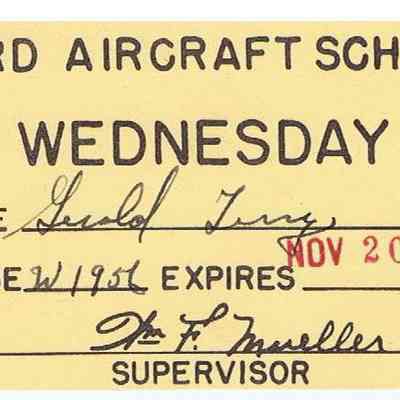 RD AIRCRAFT SCH
WEDNESDAY
E Gerald Terry
NOV 20
SE W 1956 EXPIRES
Wm F. Mueller
SUPERVISOR